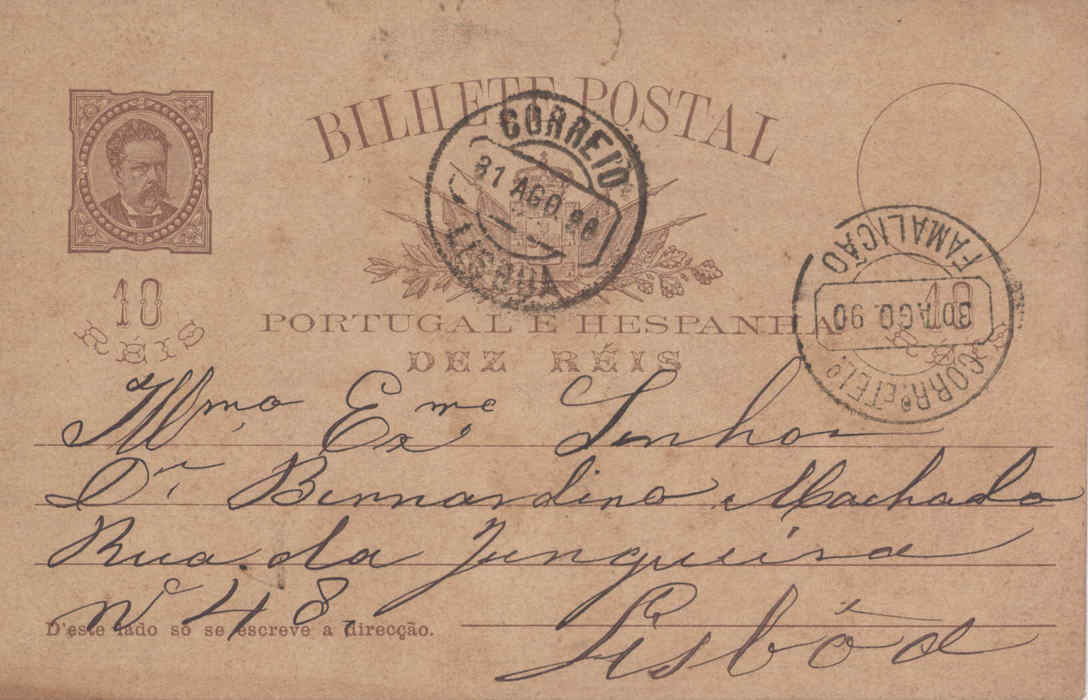 BILHETE POSTAL
CORREIO
31 AGO. 90
LISBOA
FAMALICÃO
30 AGO. 90
CORR.º E TEL.º
10
RÉIS
10
PORTUGAL E HESPANHA
DEZ RÉIS
Illmo Exmo Senhor
Dr. Bernardino Machado
Rua da Junqueira
Nº 48.
D'este lado só se escreve a direcção.
Lisbôa